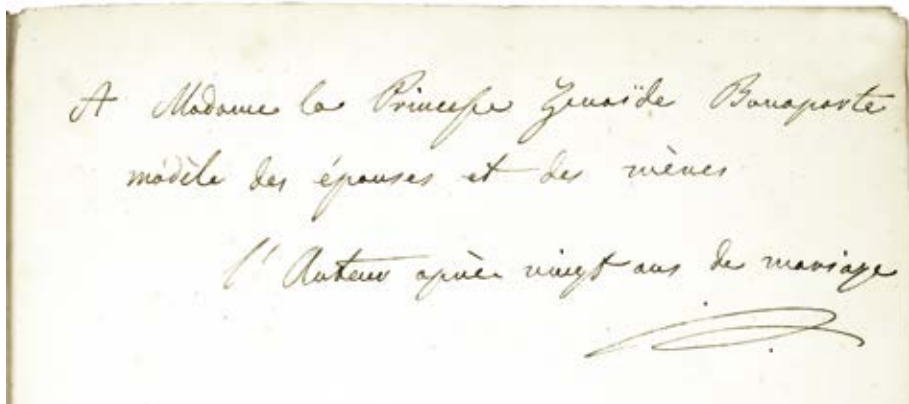 A Madame la Princesse Zenaïde Bonaparte
modèle des épouses et des mères
l'Auteur après vingt ans de mariage